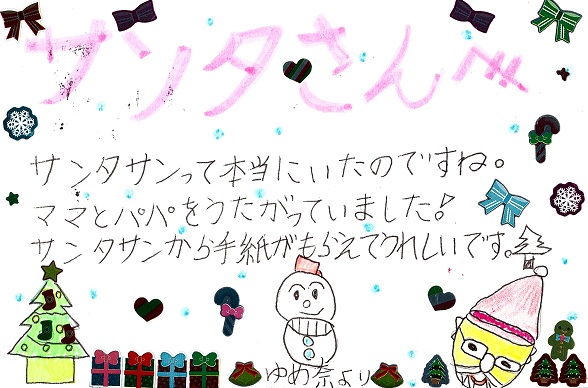 サンタさんへ
サンタサンって本当にいたのですね。
ママとパパをうたがっていました!
サンタサンから手紙がもらえてうれしいです。
ゆめ奈より